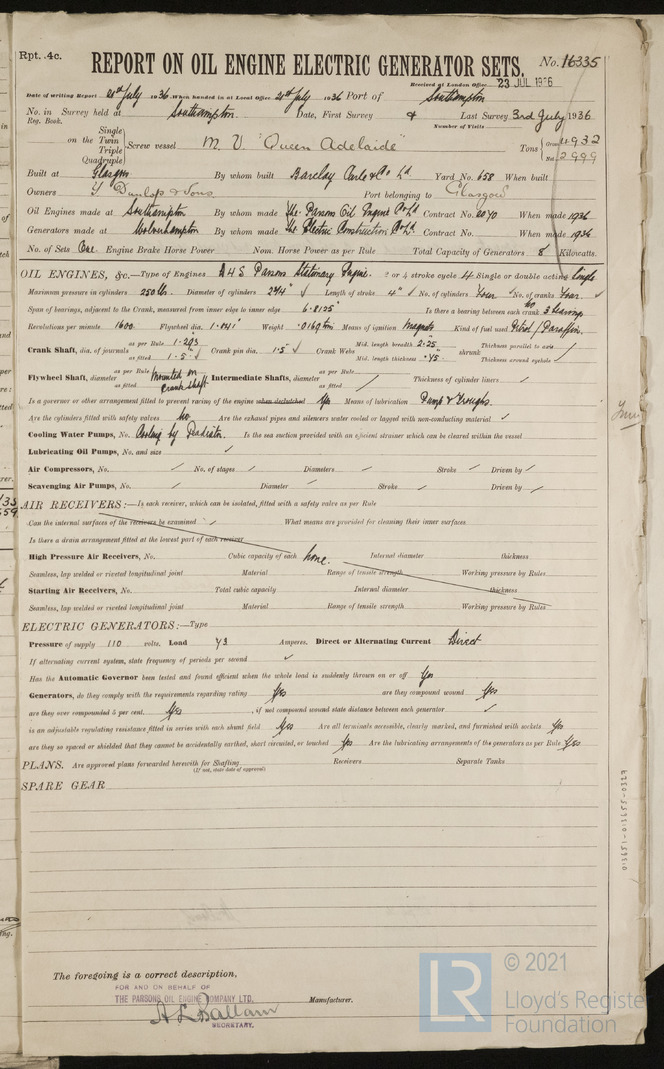 Rpt. 4c.
REPORT ON OIL ENGINE ELECTRIC GENERATOR SETS.
No. 16335
Received at London Office 23 JUL 1936
Date of writing Report 21st July 1936 When handed in at Local Office 21st July 1936 Port of Southampton
No. in Survey held at Southampton. Date, First Survey & Last Survey 3rd July 1936
Reg. Book. Number of Visits
on the Single Twin Triple Quadruple Screw vessel M. V. "Queen Adelaide" Tons Gross 4932 Net 2999
Built at Glasgow By whom built Barclay Curle & Co Ld Yard No. 658 When built
Owners Dunlop & Sons Port belonging to Glasgow
Oil Engines made at Southampton By whom made The Parsons Oil Engine Co Ld Contract No. When made 1936
Generators made at Wolverhampton By whom made The Electric Construction Co Ld Contract No. When made 1936
No. of Sets One Engine Brake Horse Power Nom. Horse Power as per Rule Total Capacity of Generators 8 Kilowatts.
OIL ENGINES, &c.—Type of Engines H4S Parsons Stationary Engine. 2 or 4 stroke cycle 4. Single or double acting Single.
Maximum pressure in cylinders 250 lbs. Diameter of cylinders 2¾" Length of stroke 4" No. of cylinders Four No. of cranks Four.
Span of bearings, adjacent to the Crank, measured from inner edge to inner edge 6.8125" Is there a bearing between each crank No 3 bearings
Revolutions per minute 1600. Flywheel dia. 1.041' Weight .0169 tons Means of ignition Magneto Kind of fuel used Petrol / Paraffin.
Crank Shaft, dia. of journals as per Rule 1.293 as fitted 1.5" Crank pin dia. 1.5" Crank Webs Mid. length breadth 2.25 Mid. length thickness .75 shrunk Thickness parallel to axis Thickness around eyehole
Flywheel Shaft, diameter as per Rule as fitted Mounted on crankshaft Intermediate Shafts, diameter as per Rule as fitted Thickness of cylinder liners
Is a governor or other arrangement fitted to prevent racing of the engine when declutched Yes Means of lubrication Pump & Troughs.
Are the cylinders fitted with safety valves No Are the exhaust pipes and silencers water cooled or lagged with non-conducting material
Cooling Water Pumps, No. Cooling by Radiator. Is the sea suction provided with an efficient strainer which can be cleared within the vessel
Lubricating Oil Pumps, No. and size
Air Compressors, No. No. of stages Diameters Stroke Driven by
Scavenging Air Pumps, No. Diameter Stroke Driven by
AIR RECEIVERS:—Is each receiver, which can be isolated, fitted with a safety valve as per Rule
Can the internal surfaces of the receivers be examined What means are provided for cleaning their inner surfaces
Is there a drain arrangement fitted at the lowest part of each receiver
High Pressure Air Receivers, No. Cubic capacity of each None. Internal diameter thickness
Seamless, lap welded or riveted longitudinal joint Material Range of tensile strength Working pressure by Rules
Starting Air Receivers, No. Total cubic capacity Internal diameter thickness
Seamless, lap welded or riveted longitudinal joint Material Range of tensile strength Working pressure by Rules
ELECTRIC GENERATORS:—Type
Pressure of supply 110 volts. Load 73 Amperes. Direct or Alternating Current Direct
If alternating current system, state frequency of periods per second
Has the Automatic Governor been tested and found efficient when the whole load is suddenly thrown on or off Yes
Generators, do they comply with the requirements regarding rating Yes are they compound wound Yes
are they over compounded 5 per cent. Yes , if not compound wound state distance between each generator
is an adjustable regulating resistance fitted in series with each shunt field Yes Are all terminals accessible, clearly marked, and furnished with sockets Yes
are they so spaced or shielded that they cannot be accidentally earthed, short circuited, or touched Yes Are the lubricating arrangements of the generators as per Rule Yes
PLANS. Are approved plans forwarded herewith for Shafting Receivers Separate Tanks
(If not, state date of approval)
SPARE GEAR
013651-013655-0327
The foregoing is a correct description,
FOR AND ON BEHALF OF
THE PARSONS OIL ENGINE COMPANY LTD. Manufacturer.
A L Ballam
SECRETARY.
LR © 2021
Lloyd's Register
Foundation